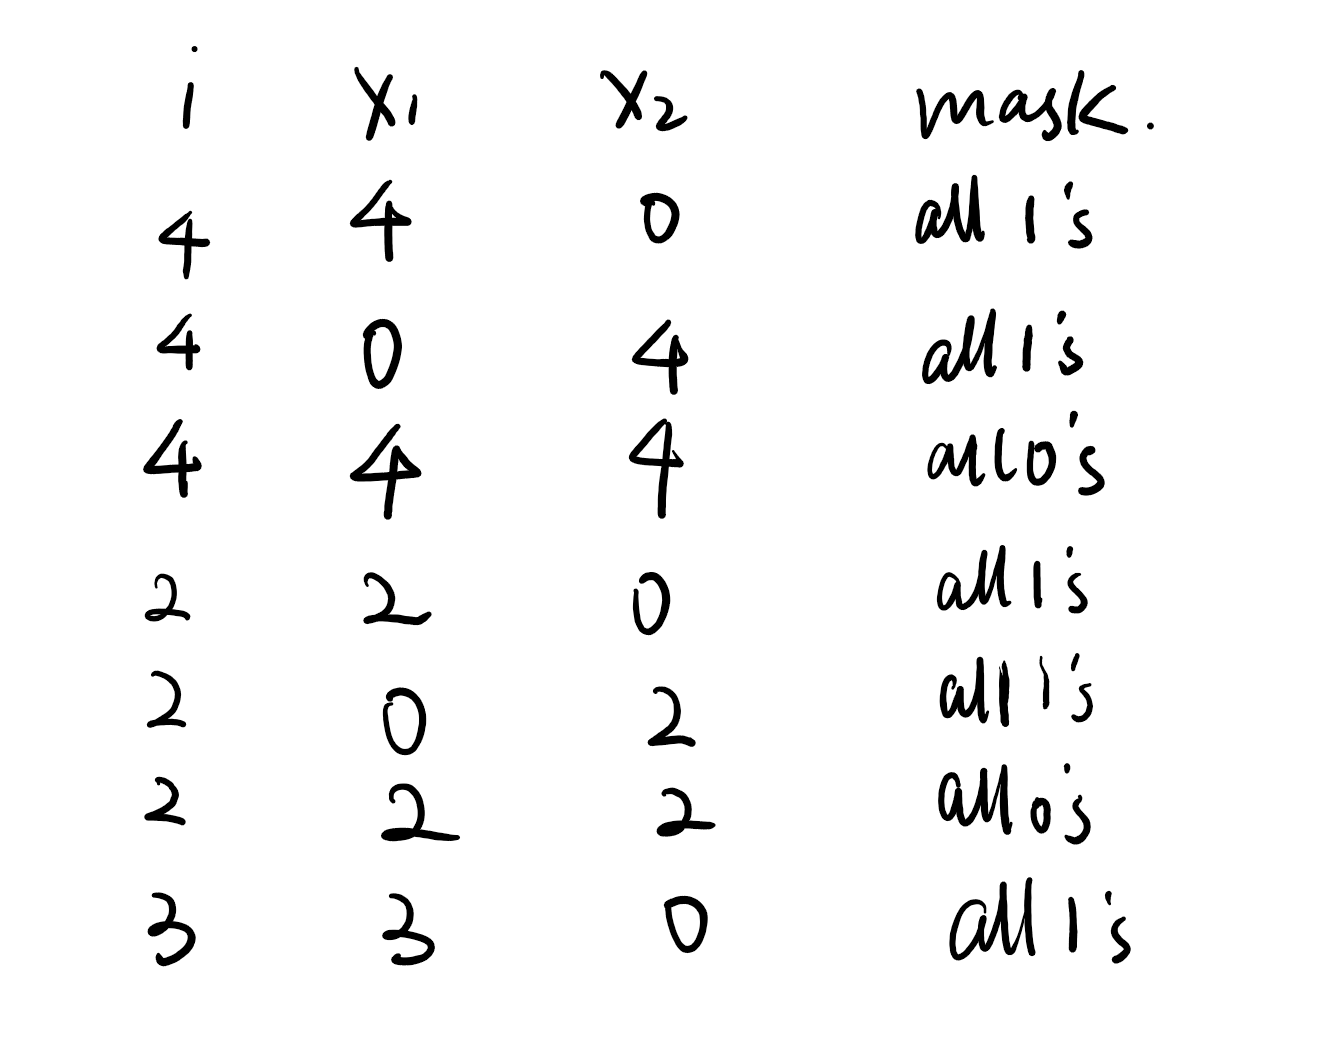 i x1 x2 mask.
4 4 0 all 1's
4 0 4 all 1's
4 4 4 all 0's
2 2 0 all 1's
2 0 2 all 1's
2 2 2 all 0's
3 3 0 all 1's